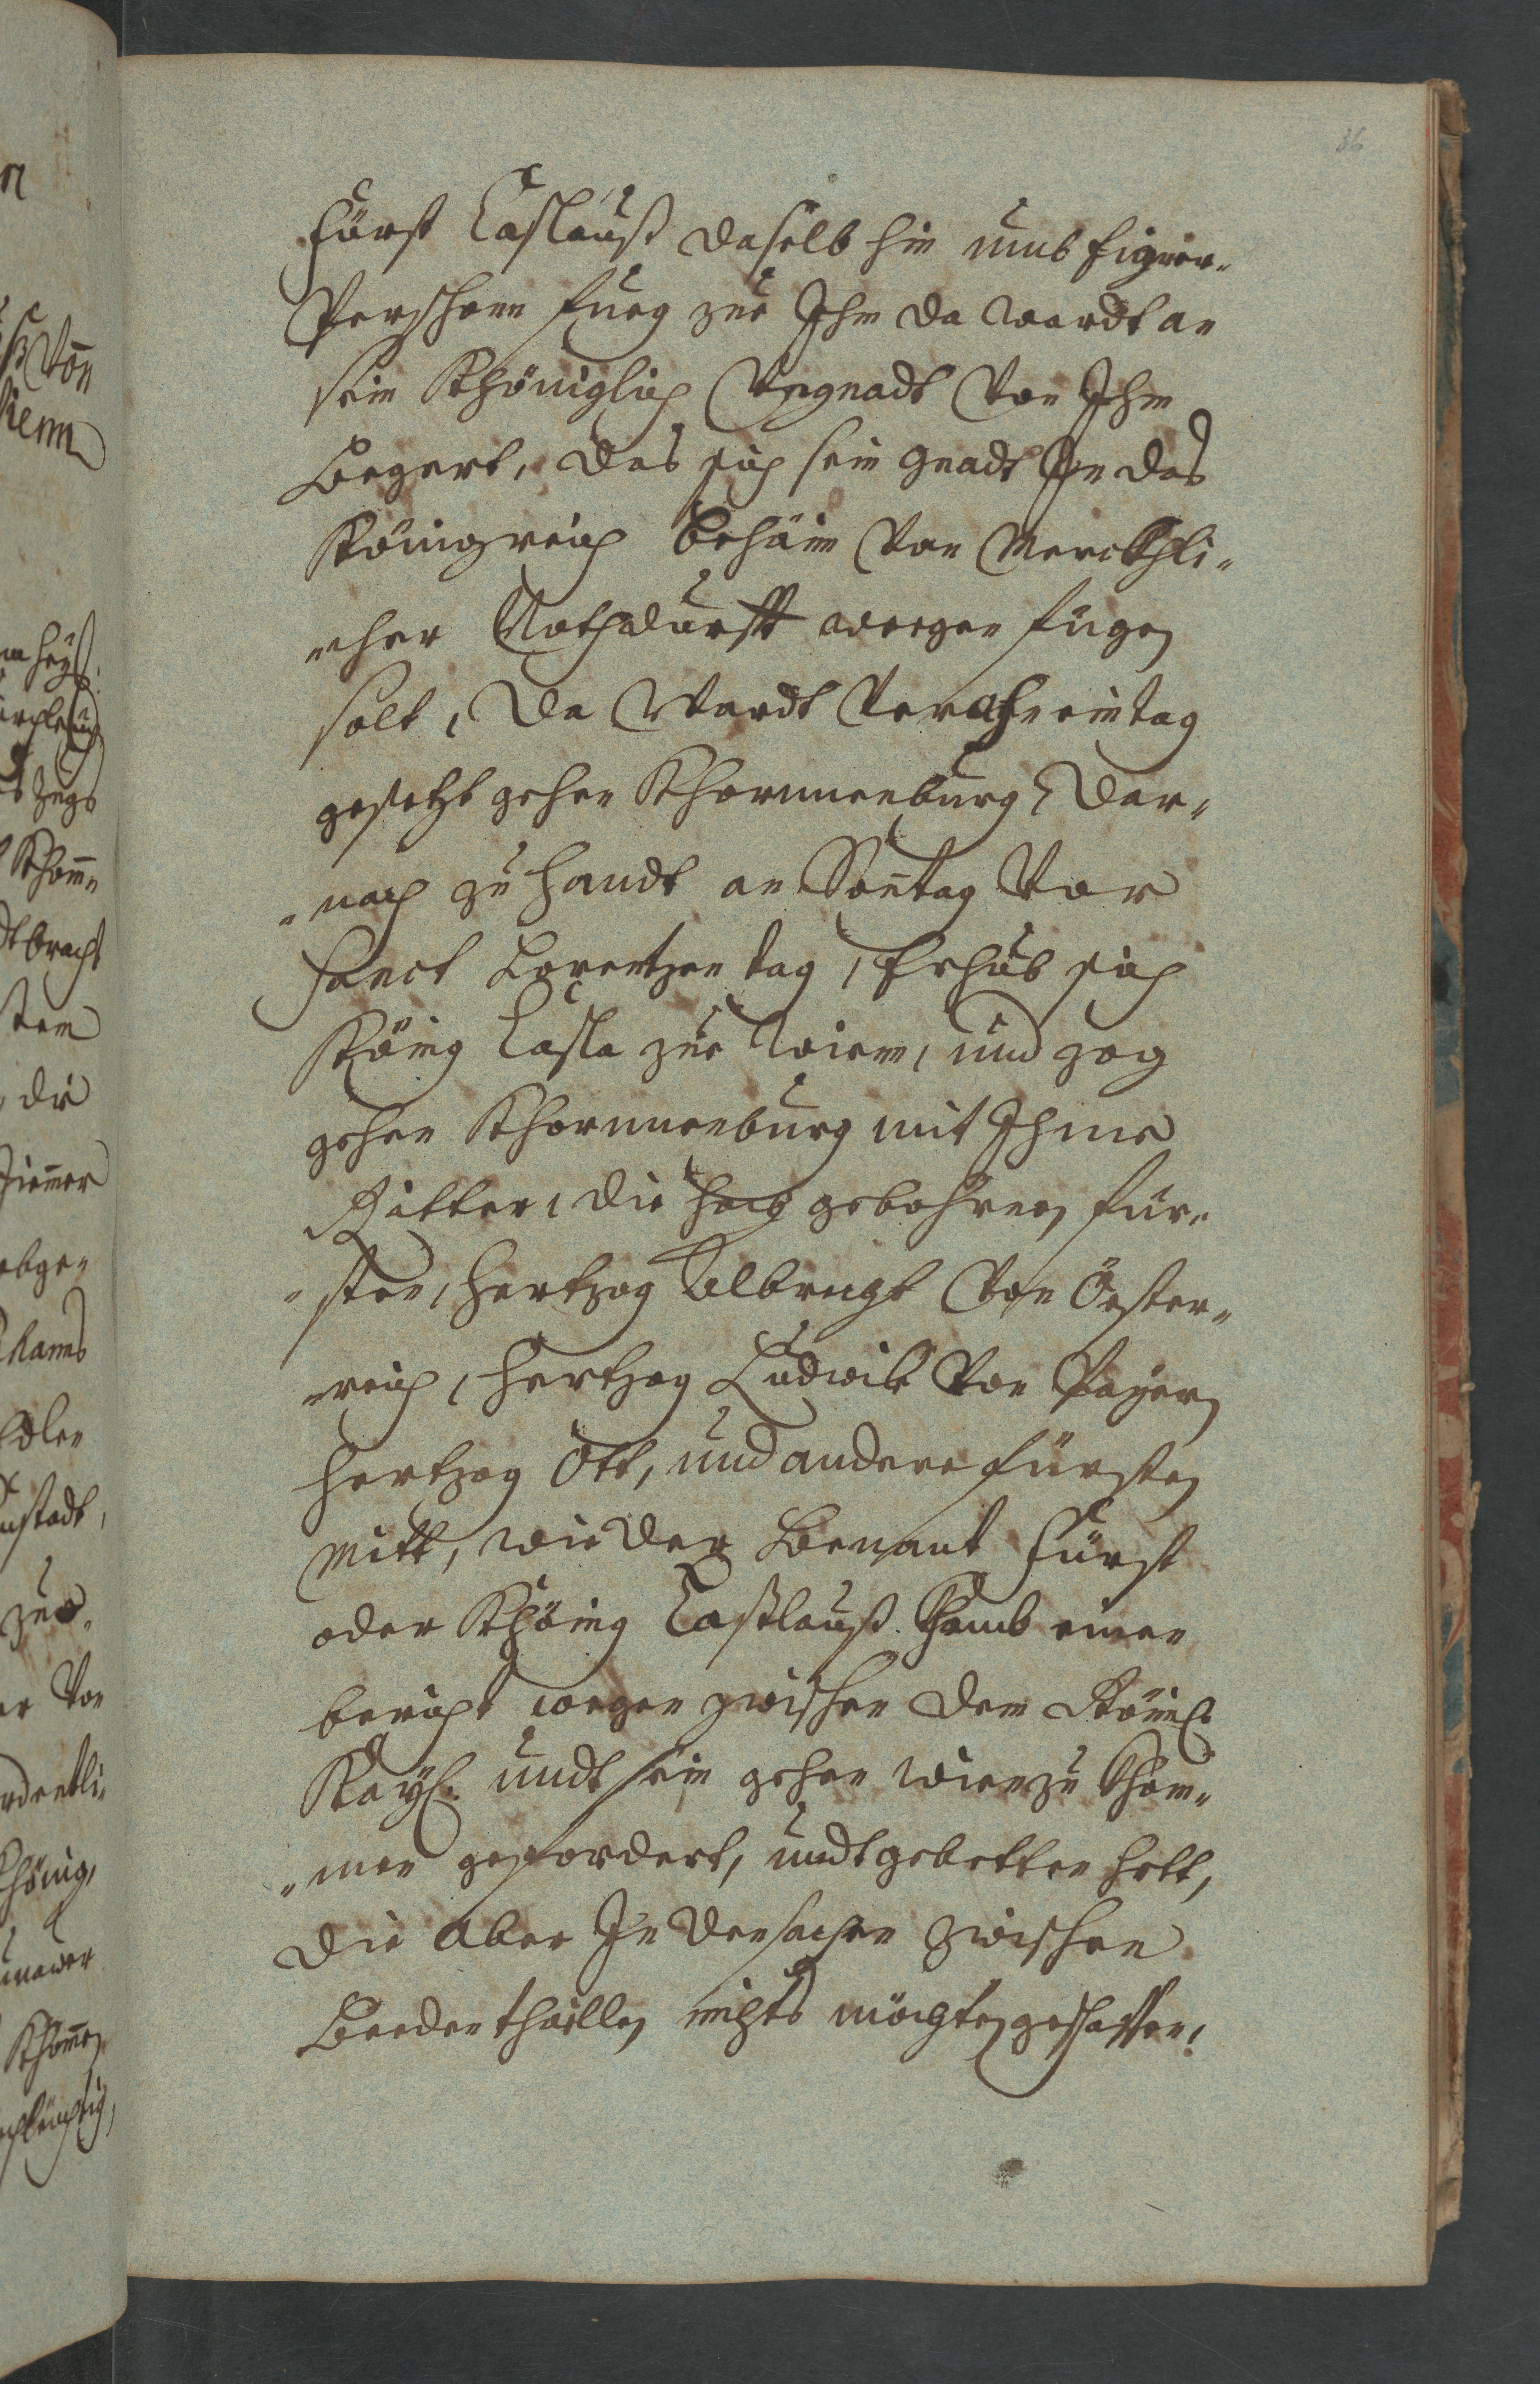 36
Fürst Caslauß daselb hin umb Eigner„
Pershonn fueg zue Ihm da wardt an
sein Khöniglich Vngnadt Von Ihm
Begert, das sich sein gnadt In das
Königreich Behäim Von Merckhli„
„cher Nothdurfft wegen fügen
solt, Da Wardt Verahn ein tag
gesetzt gehen Khornneuburg, Dar„
„nach zu handt an Sontag Vor
Sanct Lorentzen tag, Erhub sich
König Casla zue Wienn, und zog
gehen Khornneuburg mit Ihme
Ritter, die hoch gebohrnen für„
„sten, Hertzog Albrecht Von Öester„
„reich, Hertzog Ludwik Von Payern
Hertzog Ott, und andere fürsten
Mitt, wie der Benant Fürst
oder Khönig Caßlauß Khamb einen
bericht wegen zwischen dem Römis.
Kays. undt sein gehen Wien zu Khom„
„men gefordert, undt gebetten hett,
die aber In den sachen zwischen
Beeden thaillen nichts möchten geschaffen,